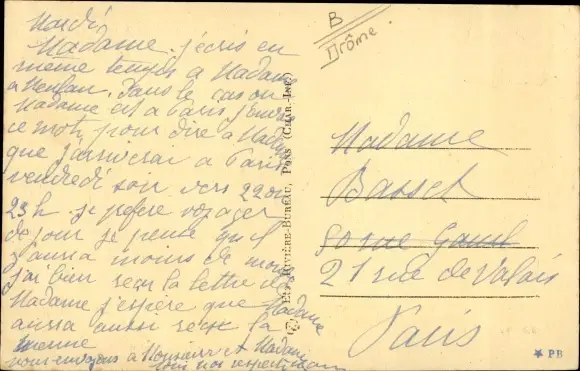 Mardi
Madame. j'écris en
même temps à Madame
a Menton. Dans le cas ou
Madame est a Paris j'envoie
ce mot, pour dire à Madame
que j'arriverai a Paris
vendredi soir vers 22 ou
23 h. je prefere voyager
de jour je pense qu'il
y aura moins de monde
j'ai bien reçu la lettre de
Madame j'espère que Madame
aura aussi reçu la
mienne
nous envoyons a Monsieur et Madame
tous nos respects
B
Drôme.
Madame
Basset
50 rue
21 rue de Valois
Paris
Rivière-Bureau, Pons (Char.-Inf.)
PB